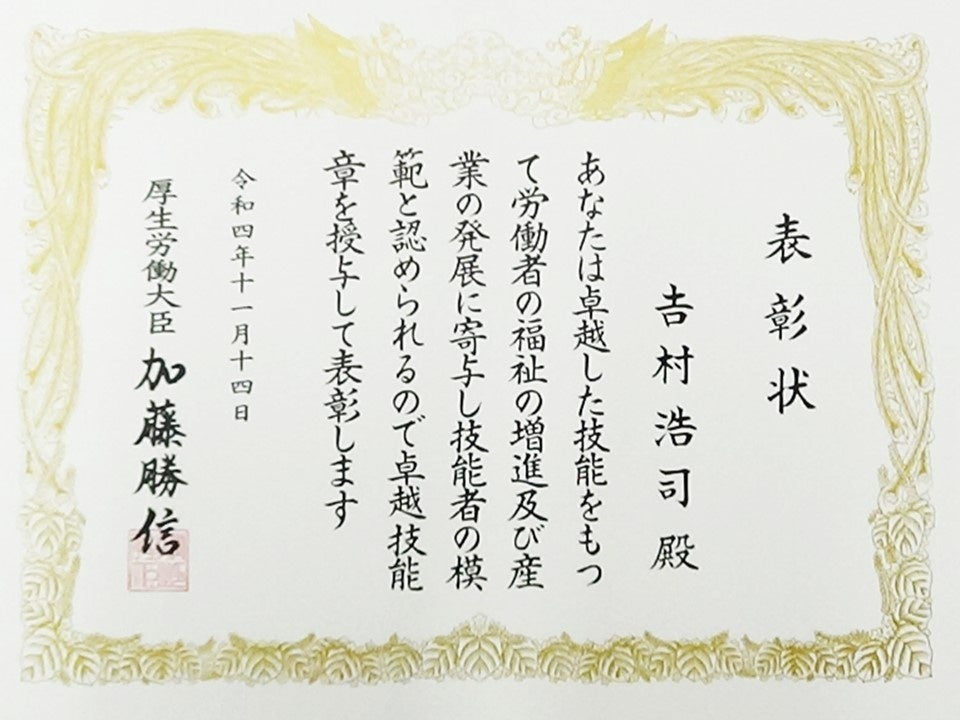 表彰状
吉村浩司殿
あなたは卓越した技能をもつ
て労働者の福祉の増進及び産
業の発展に寄与し技能者の模
範と認められるので卓越技能
章を授与して表彰します
令和四年十一月十四日
厚生労働大臣 加藤勝信